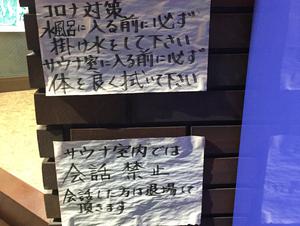 コロナ対策
水風呂に入る前に必ず
掛け水をして下さい
サウナ室に入る前に必ず
体を良く拭いて下さい
サウナ室内では
会話禁止
会話した方は退場して
頂きます